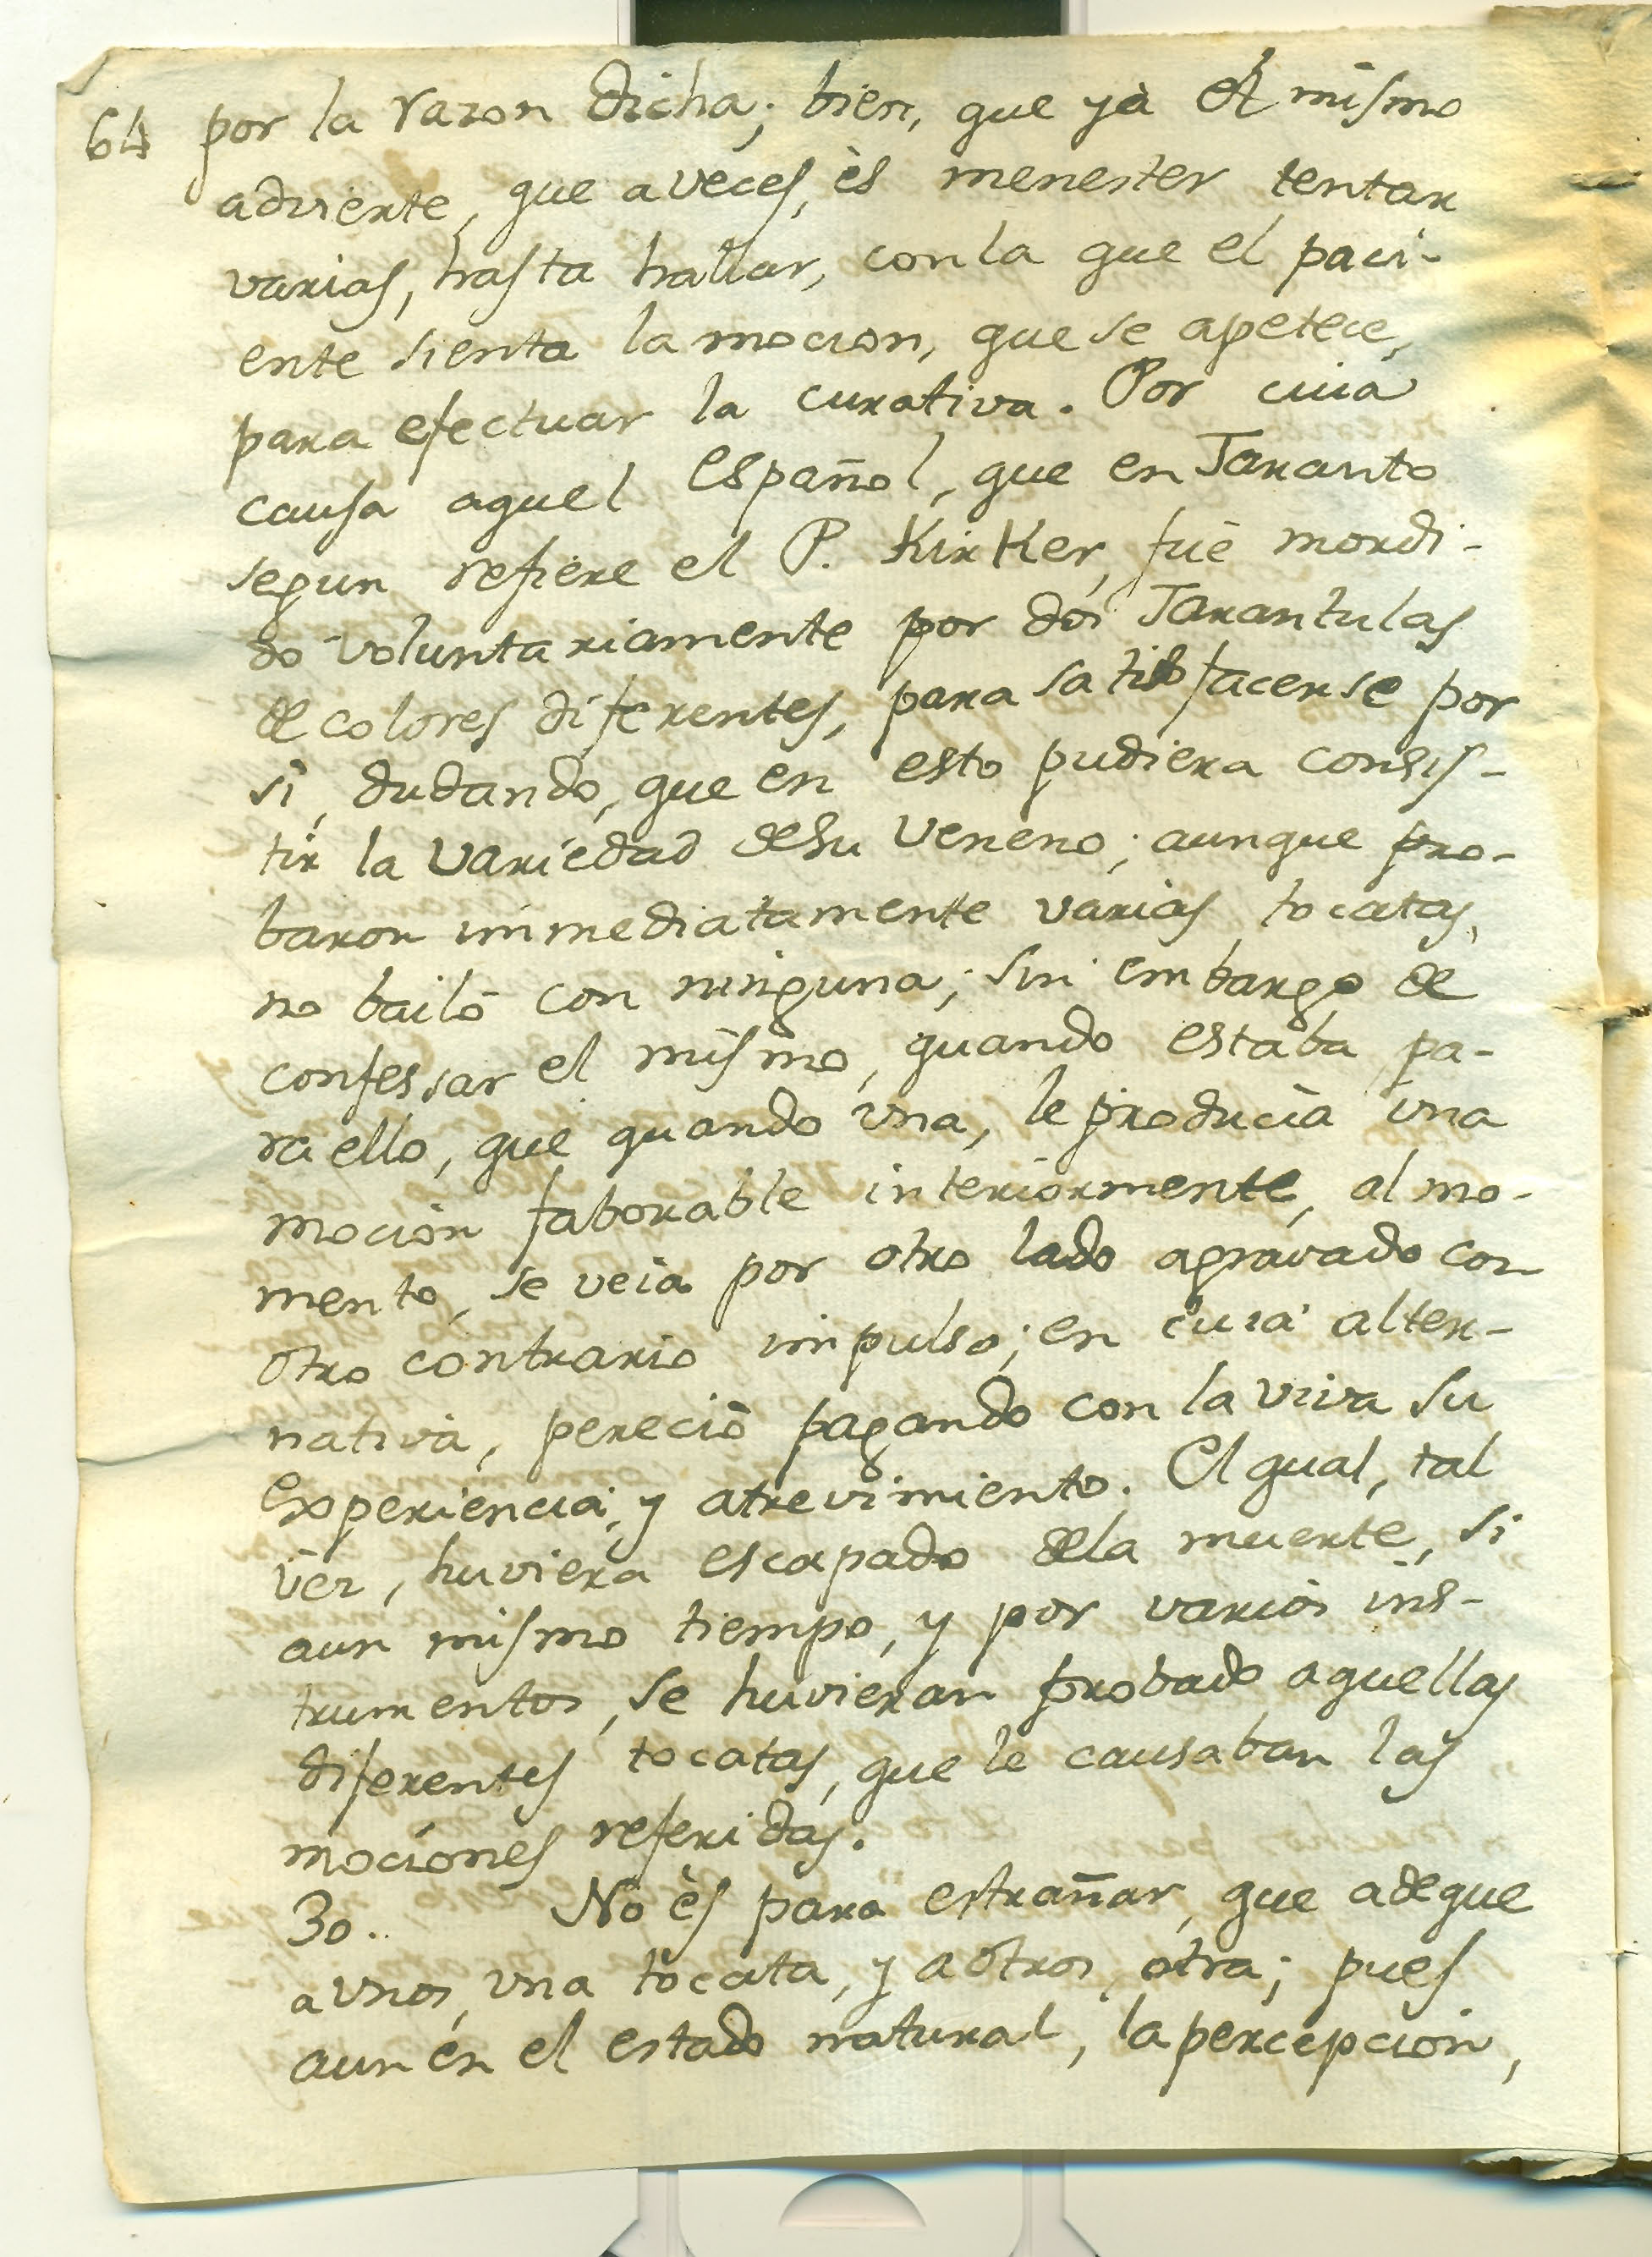 64 por la razon dicha; bien, que yà èl mismo
advierte, que aveces, ès menester tentar
varias, hasta hallar, conla que el paci-
ente sienta la mocion, que se apetece,
para efectuar la curativa. Por cuia
causa aquel español, que en Taranto
segun refiere el P. Kirker, fuè mordi-
do voluntariamente por dos Tarantulas
de colores diferentes, para satisfacerse por
si, dudando, que en esto pudiera consis-
tir la variedad desu veneno; aunque pro-
baron immediatamente varias tocatas,
no bailò con ninguna; sin embargo de
confessar el mismo, quando estaba pa-
ra ello, que quando vna, le producia vna
mocion faborable interiormente, al mo-
mento, se veia por otro lado agravado con
otro contrario impulso; en cuia alter-
nativa, pereciò pagando con la viva su
experiencia, y atrevimiento. El qual, tal
vez, huviera escapado dela muerte, si
aun mismo tiempo, y por varios ins-
trumentos, se huvieran probado aquellas
diferentes tocatas, que le causaban las
mociones referidas.
30. No ès para estrañar, que adeque
a vnos, vna tocata, y a otros, otra; pues
aun en el estado natural, la percepcion,